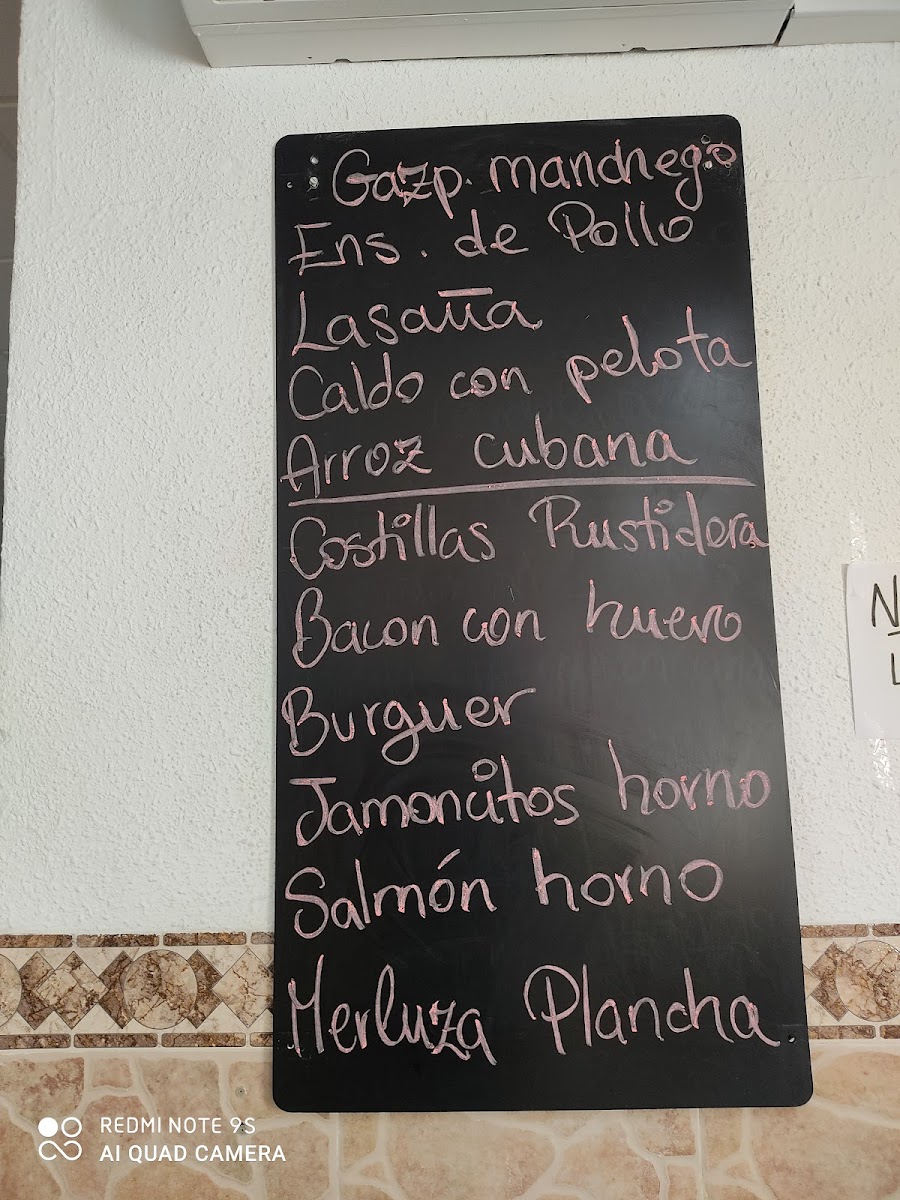 Gazp. manchego
Ens. de Pollo
Lasaña
Caldo con pelota
Arroz cubana
Costillas Rustidera
Bacon con huevo
Burguer
Jamoncitos horno
Salmón horno
Merluza Plancha
N
L
REDMI NOTE 9S
AI QUAD CAMERA